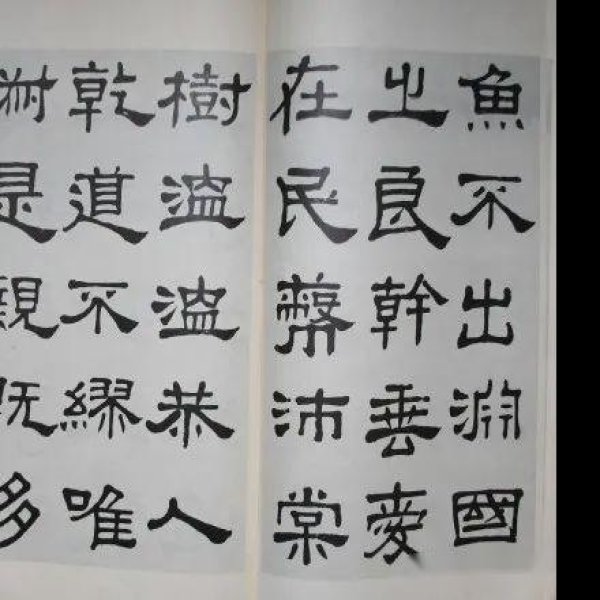 魚不出淵國
之良幹垂愛
在民蔽沛棠
樹溫溫恭人
乾道不繆唯
是親既多